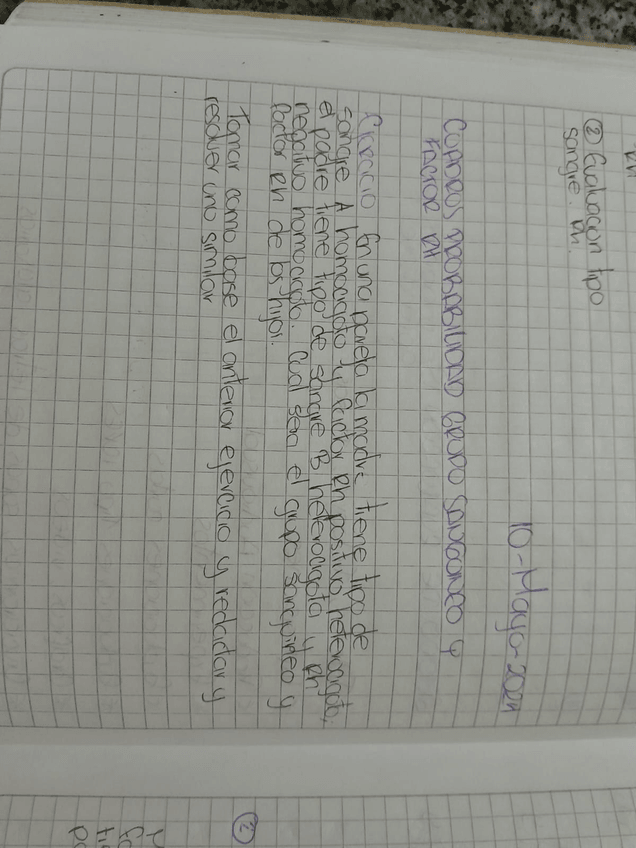 ② Evaluacion tipo
sangre. Rh.
10-Mayo-2024
CUADROS PROBABILIDAD GRUPO SANGUINEO Y
FACTOR RH
Ejercicio En una pareja la madre tiene tipo de
sangre A homocigoto y factor Rh positivo heterocigoto,
el padre tiene tipo de sangre B heterocigota y Rh
negativo homocigoto. Cual sera el grupo sanguineo y
factor Rh de los hijos.
Tomar como base el anterior ejercicio y redactar y
resolver uno similar
②